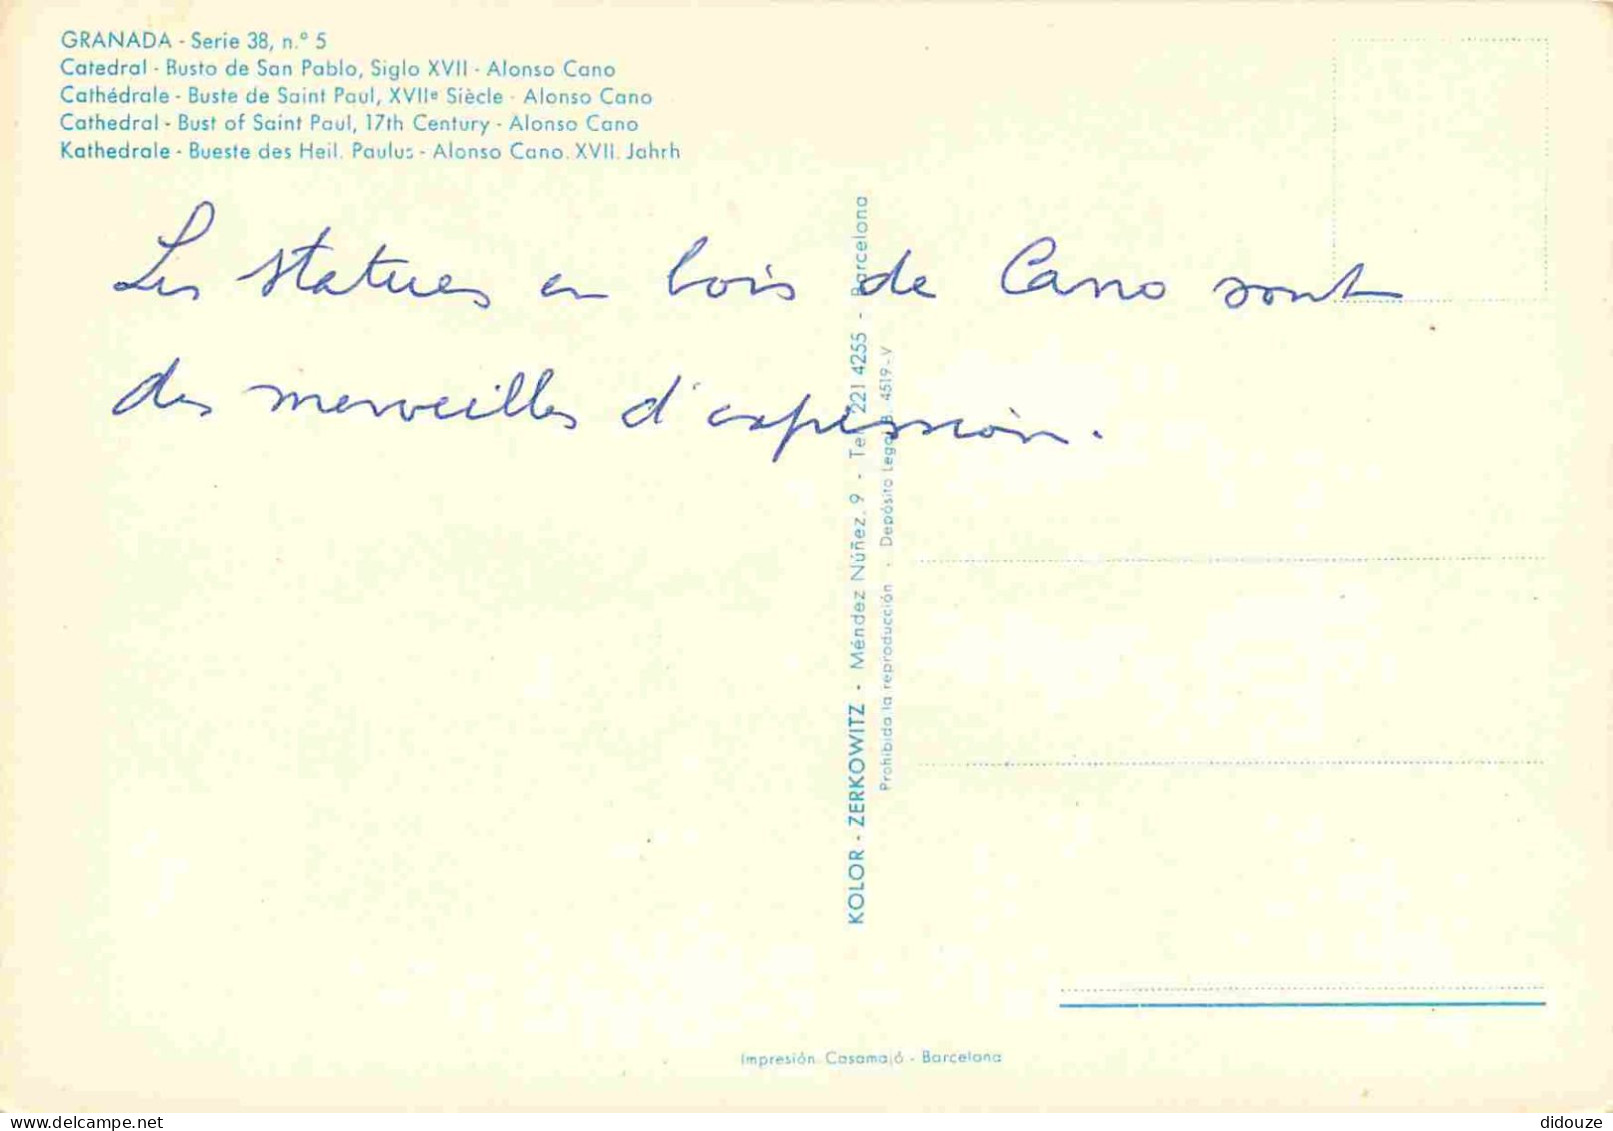 GRANADA - Serie 38, n.º 5
Catedral - Busto de San Pablo, Siglo XVII - Alonso Cano
Cathédrale - Buste de Saint Paul, XVIIe Siècle - Alonso Cano
Cathedral - Bust of Saint Paul, 17th Century - Alonso Cano
Kathedrale - Bueste des Heil. Paulus - Alonso Cano. XVII. Jahrh
Les statues en bois de Cano sont
des merveilles d'expression.
KOLOR - ZERKOWITZ - Méndez Núñez, 9 - Tel. 221 4255 - Barcelona
Prohibida la reproducción - Depósito Legal B. 4519-V
Impresión Casamajó - Barcelona
delcampe.net
didouze